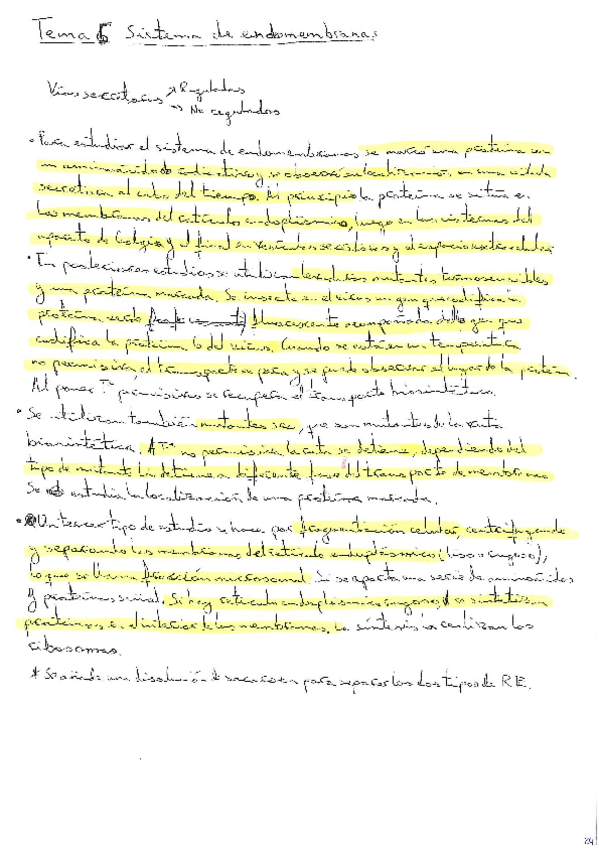 Tema 6 Sistema de endomembranas
Vías secretorias → Reguladas
→ No reguladas
• Para estudiar el sistema de endomembranas se marcó una proteína con
un aminoácido radiactivo y se observó su localización, en una célula
secretora al cabo del tiempo. Al principio la proteína se sitúa en
las membranas del retículo endoplásmico, luego en las cisternas del
aparato de Golgi y al final en vesículas secretoras y el espacio extracelular.
• En posteriores estudios se utilizan mutantes termosensibles
y una proteína marcada. Se inserta en el virus un gen que codifica
proteína verde fluorescente acompañada del gen que
codifica la proteína G del virus. Cuando se está en una temperatura
no permisiva, el transporte se para y se puede observar el lugar de la proteína.
Al poner Tª permisivas se recupera el transporte biosintético.
• Se utilizan también mutantes sec, que son mutantes de la ruta
biosintética. A Tª no permisiva la ruta se detiene, dependiendo del
tipo de mutante la detiene a diferente fase del transporte de membrana
Se estudia la localización de una proteína marcada.
• Un tercer tipo de estudio se hace por fragmentación celular, centrifugando
y separando las membranas del retículo endoplásmico (liso o rugoso),
lo que se llama fracción microsomal. Si se aporta una serie de aminoácidos
y proteínas señal. Si hay retículo endoplásmico rugoso se sintetizan
proteínas en el interior de las membranas. La síntesis la realizan los
ribosomas.
* Se añade una disolución de sacarosa para separar los dos tipos de R.E.